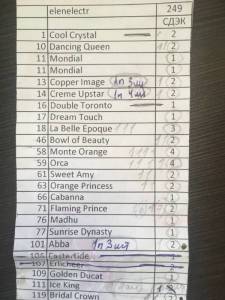 elenelectr 249
СДЭК
1 Cool Crystal 2
10 Dancing Queen 2
11 Mondial 1
11 Mondial 1
13 Copper Image 1п 3шт 2
14 Creme Upstar 1п 4шт 2
16 Double Toronto 1
17 Dream Touch 1
18 La Belle Epoque 3
46 Bowl of Beauty 2
58 Monte Orange 4
59 Orca 4
61 Sweet Amy 2
63 Orange Princess 2
66 Cabanna 1
71 Flaming Prince 2
76 Madhu 1
77 Sunrise Dynasty 1
101 Abba 1п 3шт 2
106 Eastertide
107 Erlicheer
109 Golden Ducat 1
111 Ice King
119 Bridal Crown